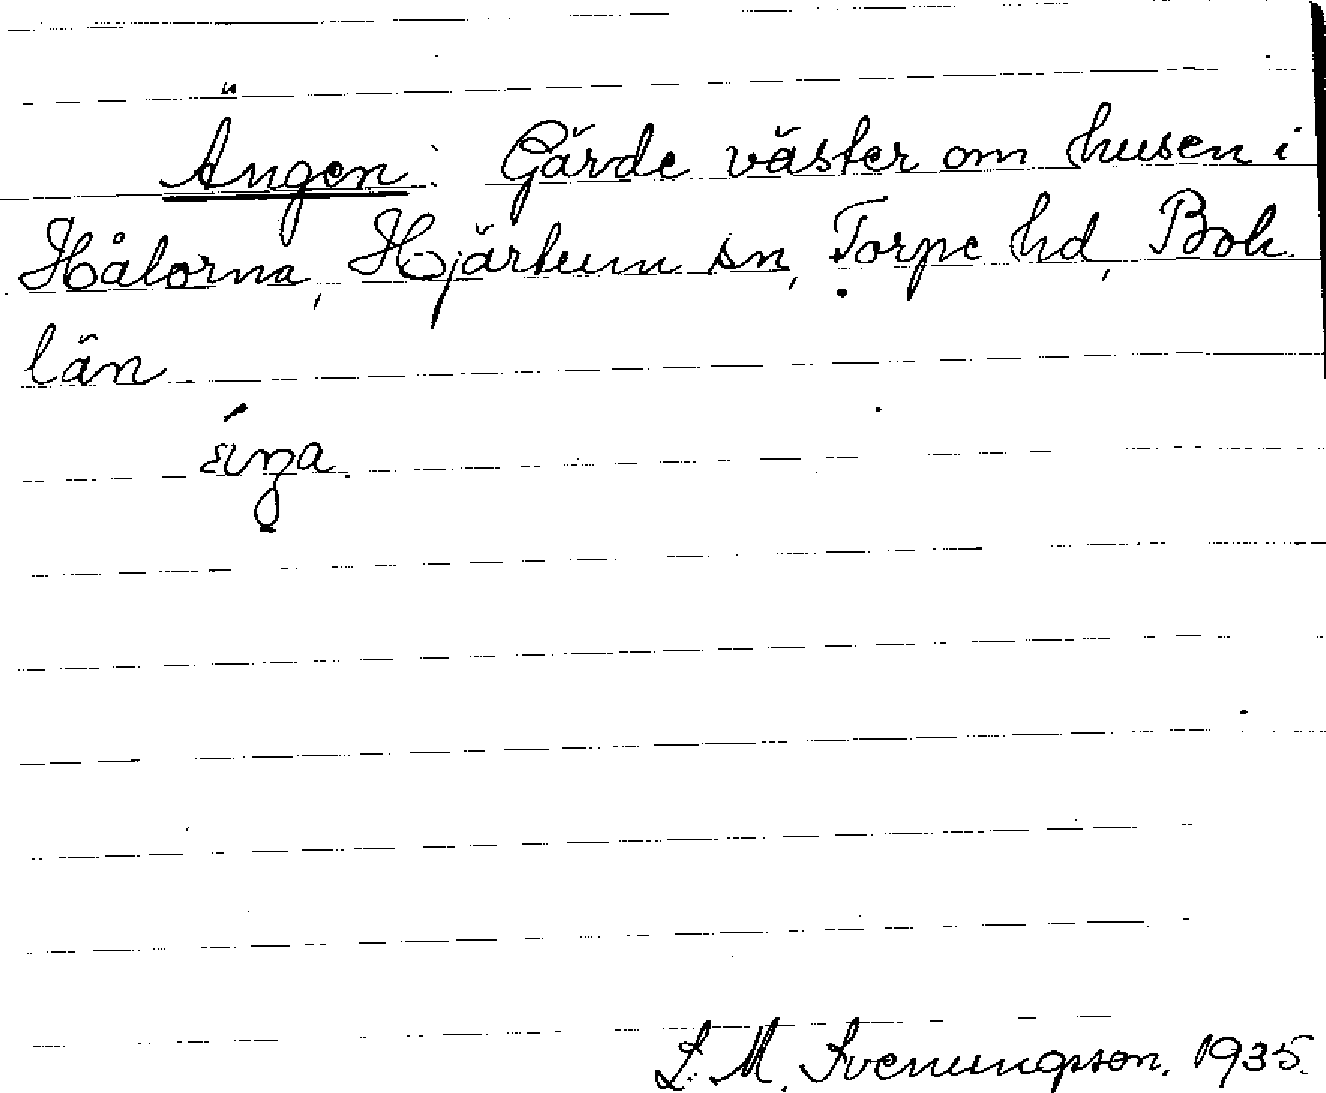 Ängen: Gärde väster om husen i
Hålorna, Hjärtum sn, Torpe hd, Boh.
län
L. M. Svenungsson. 1935.